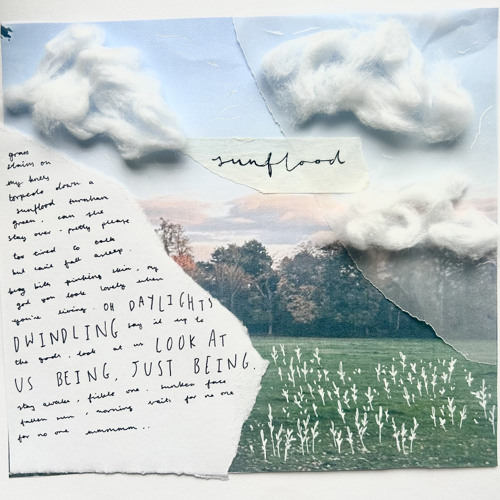 sunflood
grass
stains on
my knees
torpedo down a
sunflood
green . can she
stay over . pretty please
too tired to talk
but can't fall asleep .
bug bite pinking skin , my
god you look lovely when
you're living . OH DAYLIGHTS
DWINDLING say it up to
the gods . look at us LOOK AT
US BEING, JUST BEING.
stay awake , fickle one . sunken face
fallen sun , morning waits for no one
for no one